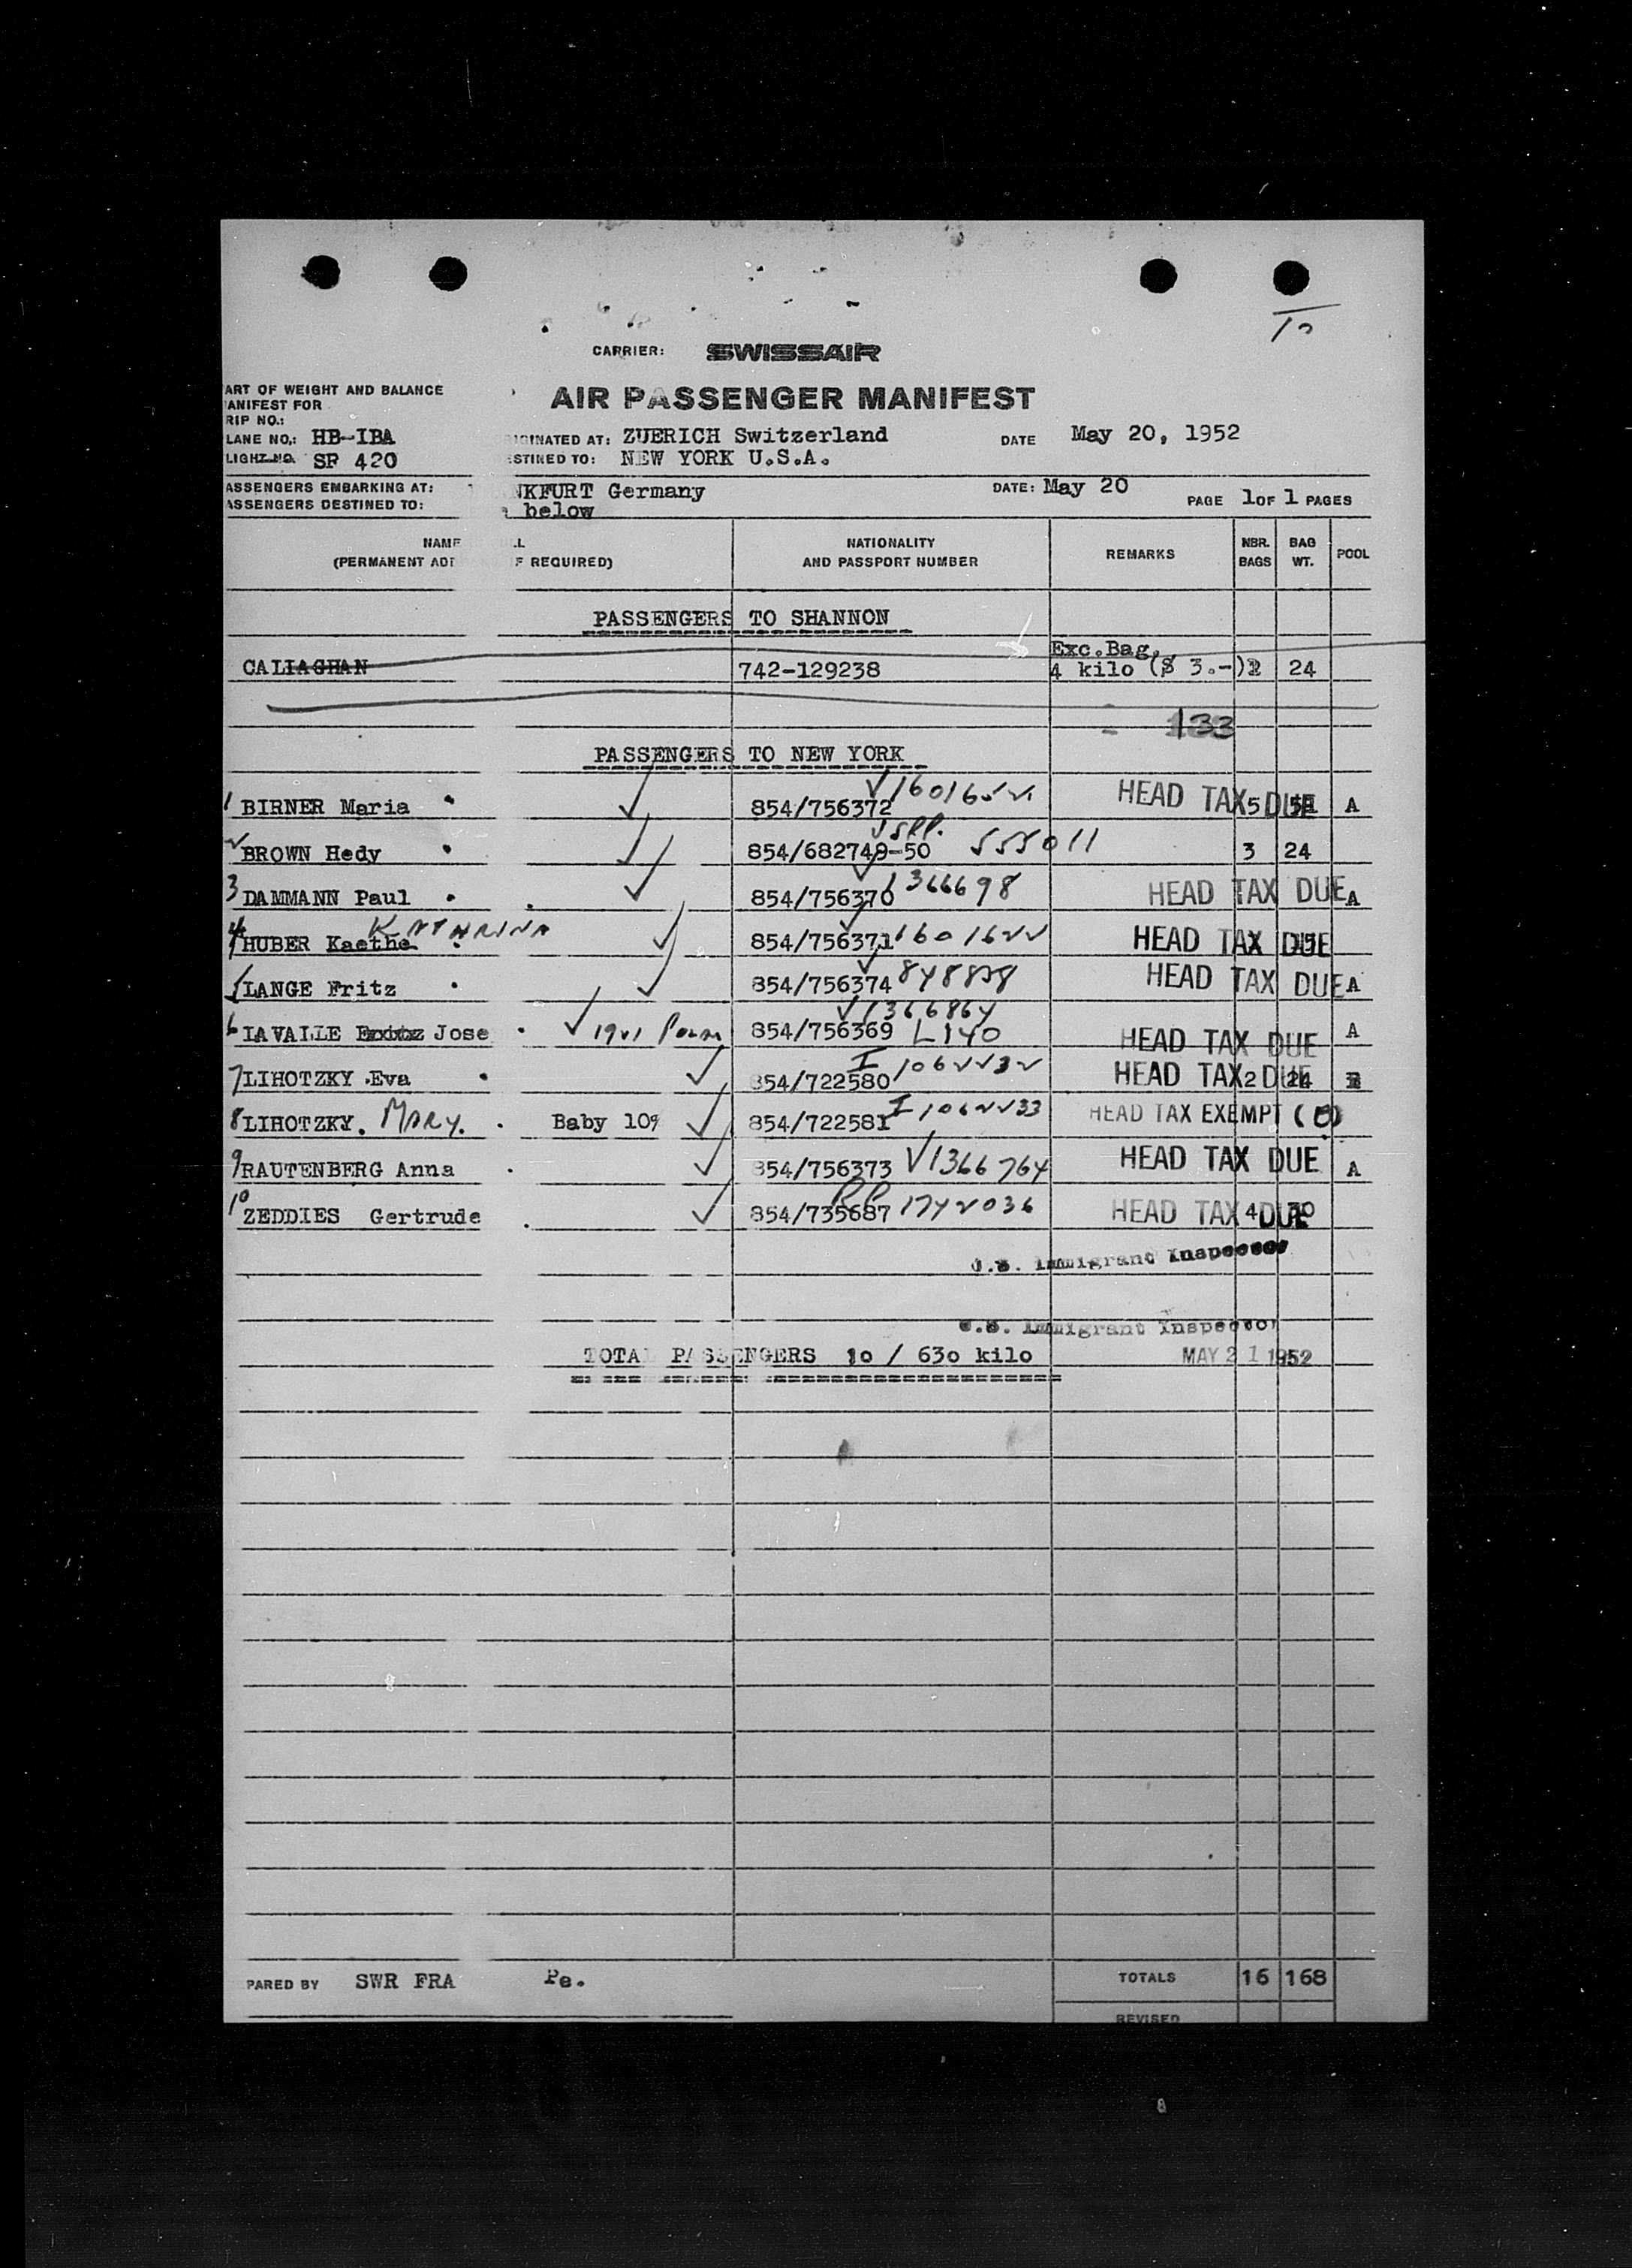 CARRIER: SWISSAIR
ART OF WEIGHT AND BALANCE
ANIFEST FOR
RIP NO.:
AIR PASSENGER MANIFEST
LANE NO.: HB-IBA IGINATED AT: ZUERICH Switzerland DATE May 20, 1952
LIGHT NO. SR 420 STINED TO: NEW YORK U.S.A.
ASSENGERS EMBARKING AT: NKFURT Germany DATE: May 20 PAGE 1 OF 1 PAGES
ASSENGERS DESTINED TO: below
NAME NATIONALITY REMARKS NBR. BAG POOL
(PERMANENT ADD F REQUIRED) AND PASSPORT NUMBER BAGS WT.
PASSENGERS TO SHANNON
Exc.Bag.
CALLAGHAN 742-129238 4 kilo ($ 3.-) 2 24
133
PASSENGERS TO NEW YORK
1 BIRNER Maria 854/756372 HEAD TAX DUE 5 A
BROWN Hedy 854/682749-50 555011 3 24
3 DAMMANN Paul 854/756370 1366698 HEAD TAX DUE A
4 HUBER Kaethe KATHARINA 854/756371 HEAD TAX DUE
LANGE Fritz 854/756374 HEAD TAX DUE A
6 LAVALLE Jose 854/756369 L140 HEAD TAX DUE A
7 LIHOTZKY Eva 854/722580 HEAD TAX DUE 2 24
8 LIHOTZKY. MARY. Baby 10% 854/722581 HEAD TAX EXEMPT
9 RAUTENBERG Anna 854/756373 V1366764 HEAD TAX DUE A
10 ZEDDIES Gertrude 854/735687 1742036 HEAD TAX DUE 4 30
U.S. Immigrant Inspector
U.S. Immigrant Inspector
TOTAL PASSENGERS 10 / 630 kilo MAY 21 1952
PARED BY SWR FRA Pe. TOTALS 16 168
REVISED